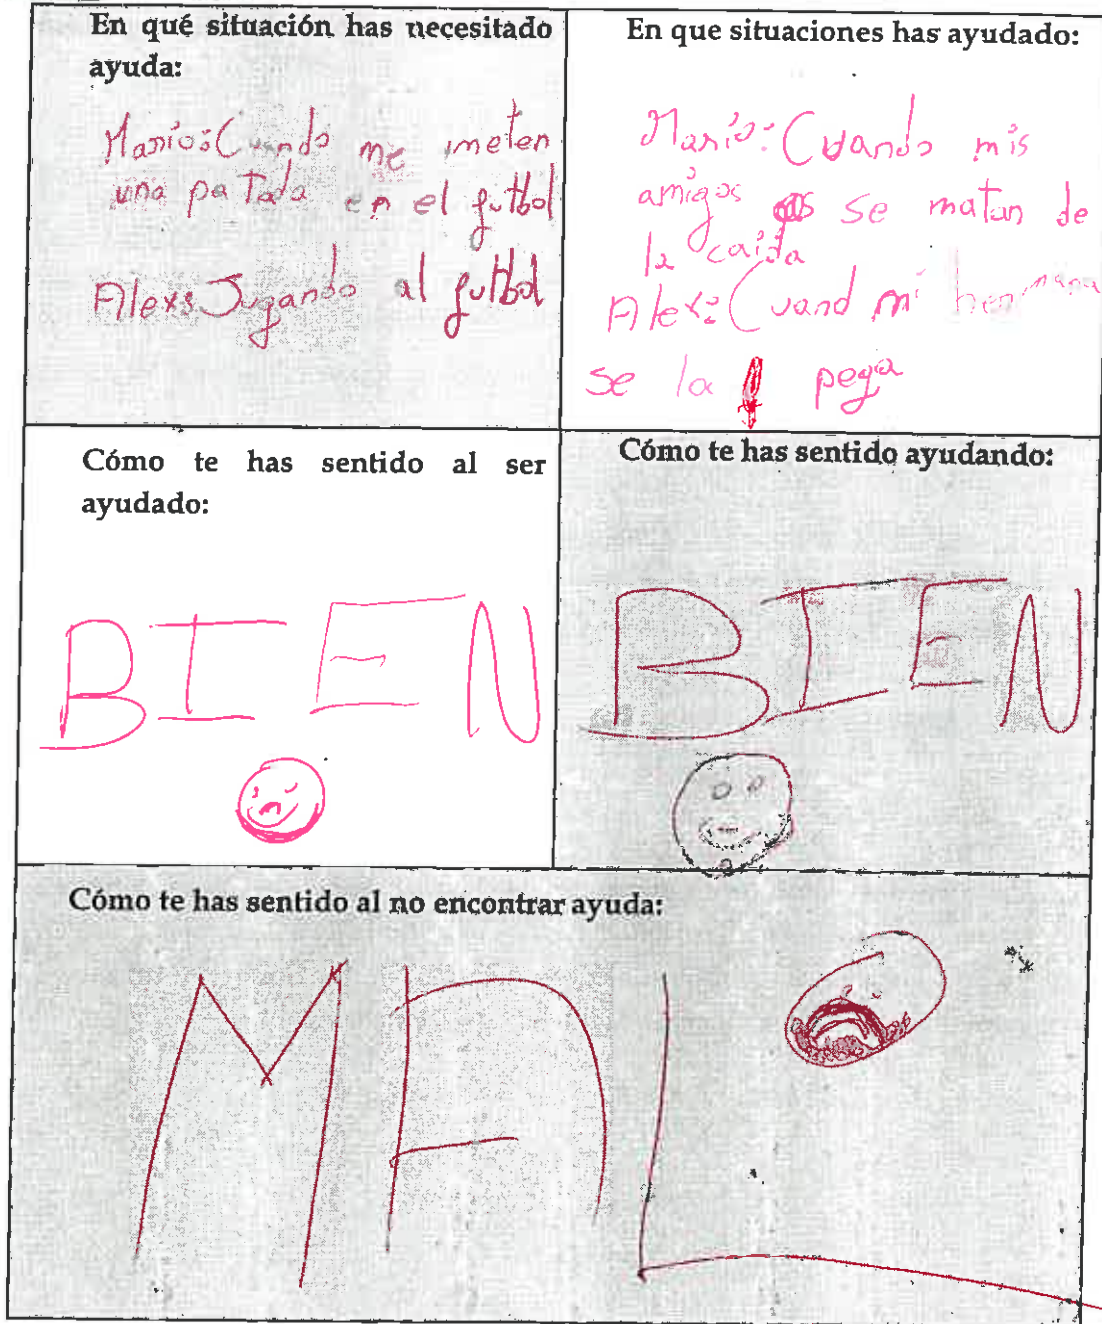 En qué situación has necesitado
ayuda:
Mario: Cuando me meten
una patada en el futbol
Alex: Jugando al futbol
En que situaciones has ayudado:
Mario: Cuando mis
amigos se matan de
la caida
Alex: Cuand mi hermana
se la pega
Cómo te has sentido al ser
ayudado:
BIEN
Cómo te has sentido ayudando:
BIEN
Cómo te has sentido al no encontrar ayuda:
MAL